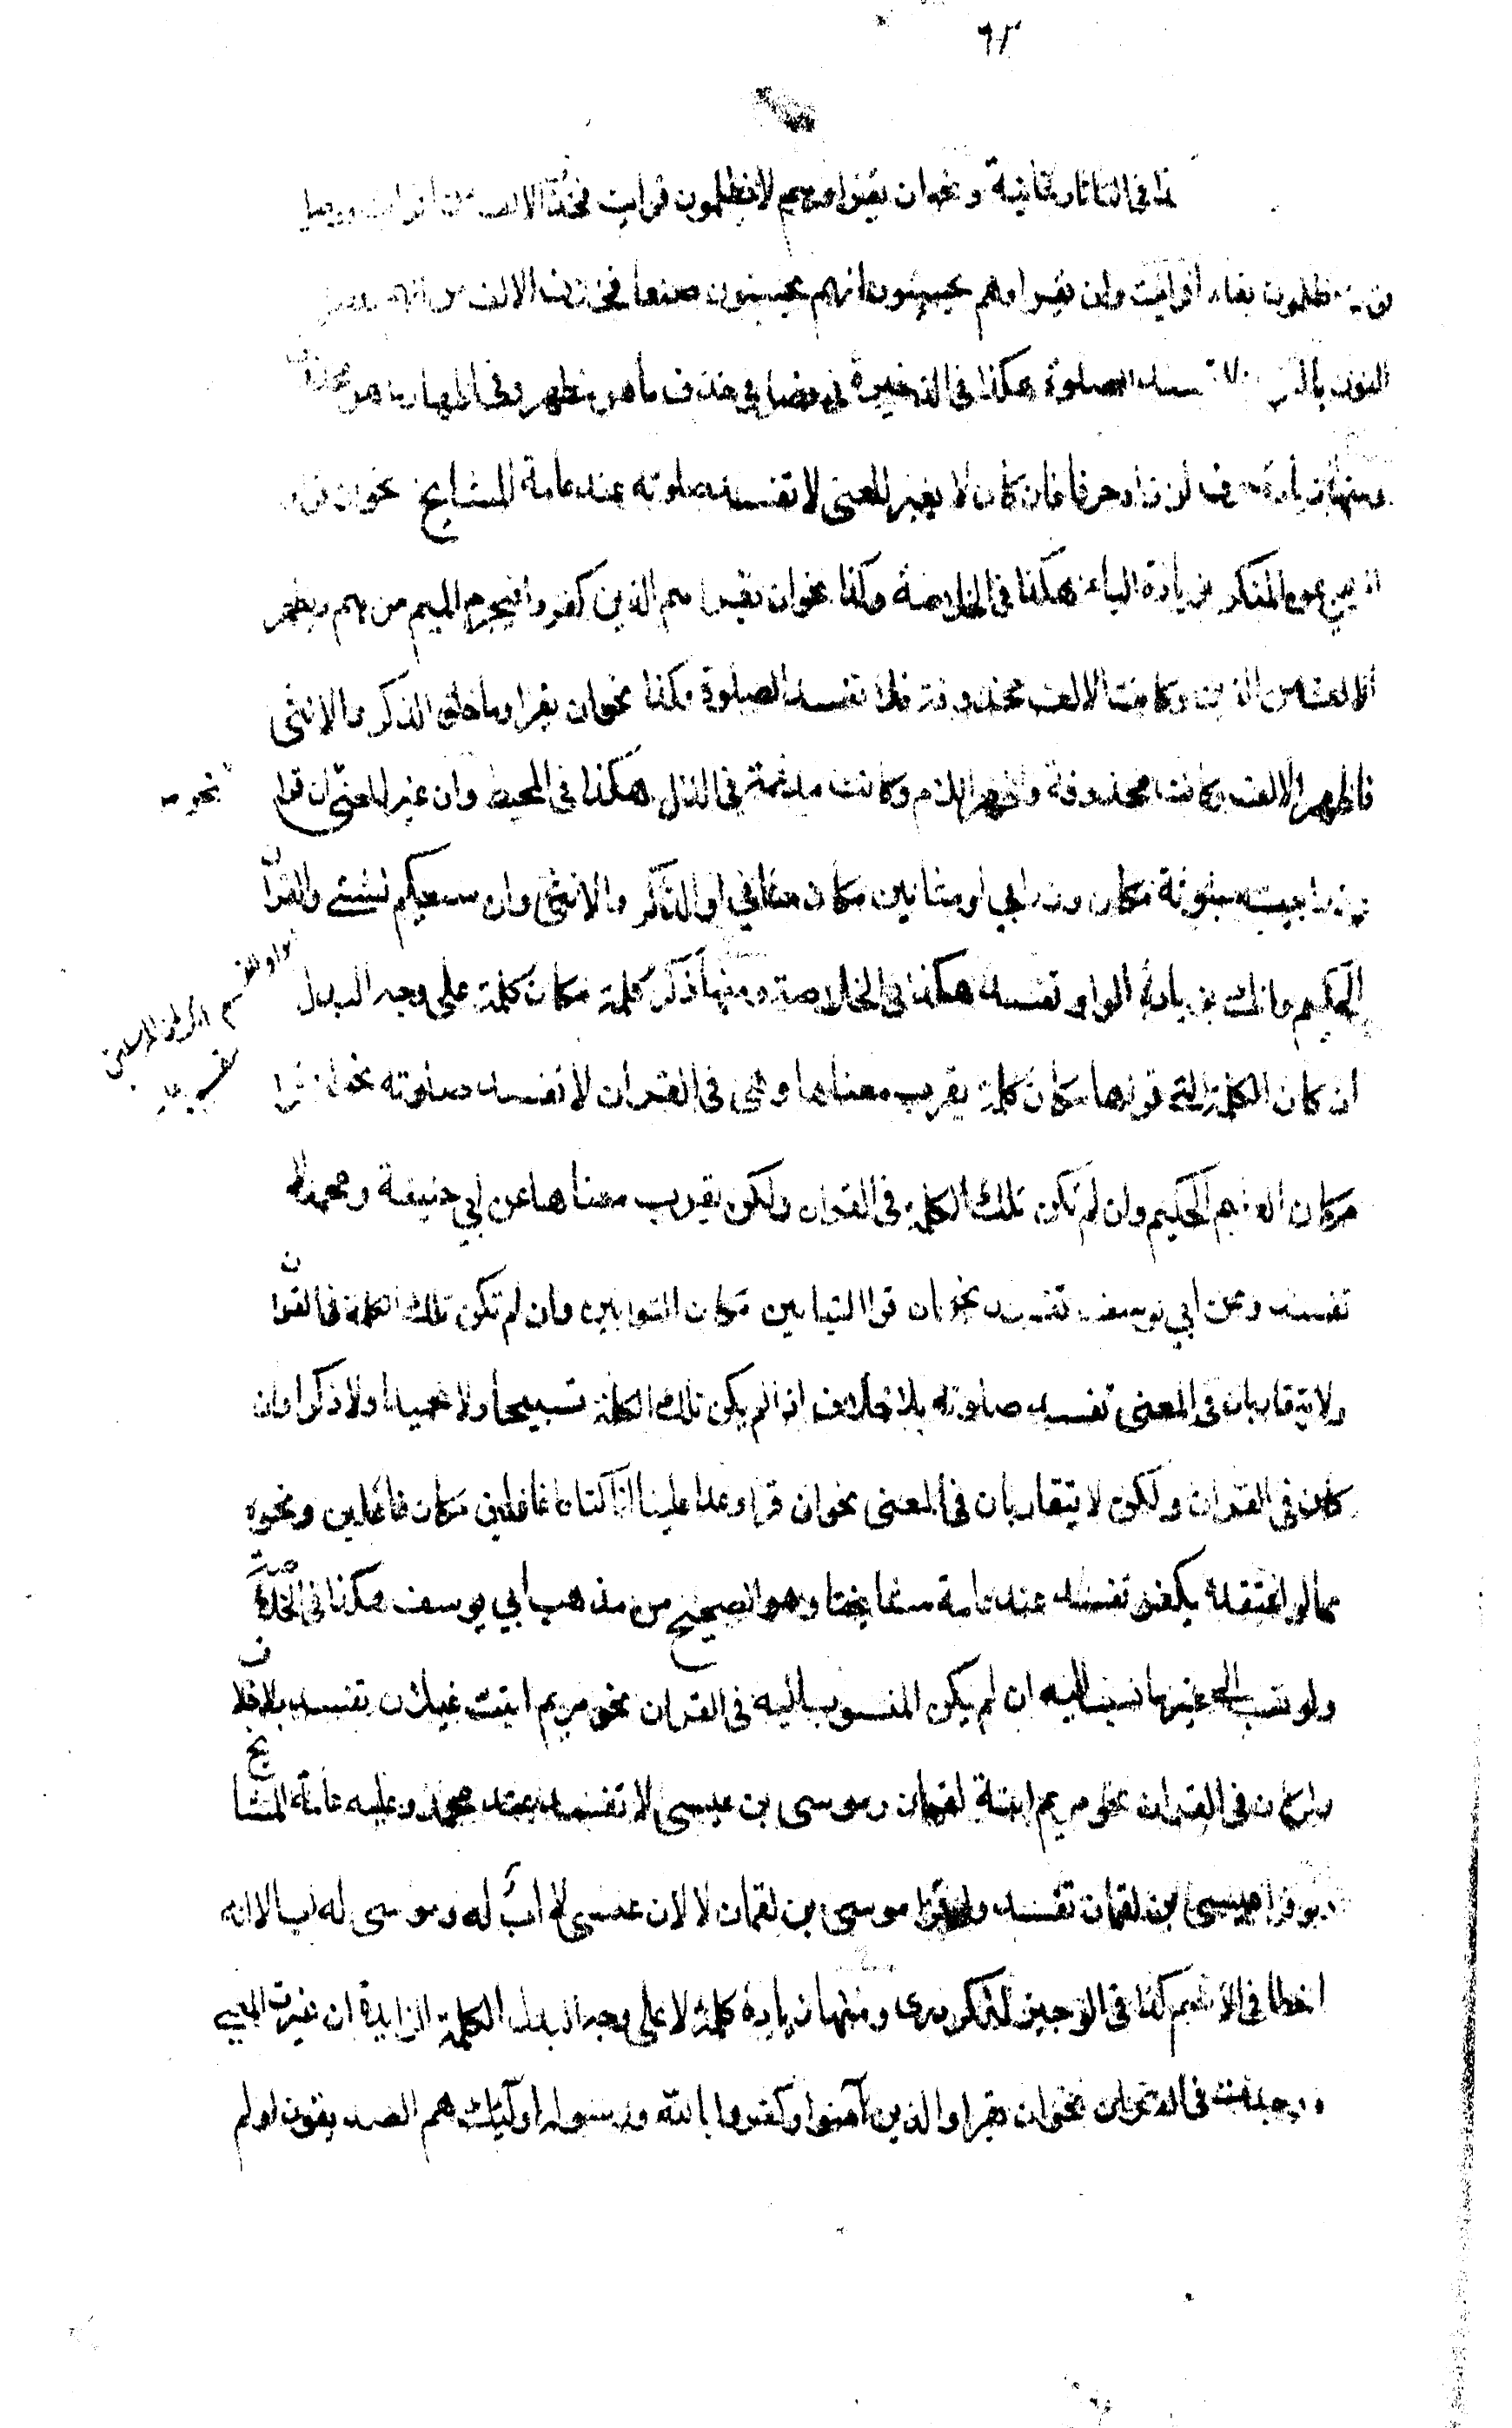 ٩٢
في التاتارخانية ونحو ان يقرا وهم لا يظلمون فرايت فحذف الالف من افرايت ووصل
نون يظلمون بفاء افرايت وان يقرا وهم يحسبون انهم يحسنون صنعا فحذف الالف من انهم
النون بالنون لا تفسد الصلوة هكذا في الذخيرة في فصل في حذف ما هو مظهر وفي اظهار ما هو محذوف
ومنها زيادة حرف لو زاد حرفا فان كان لا يغير المعنى لا تفسد صلوته عند عامة المشايخ نحو ان قرا
عن المنكر بزيادة الياء هكذا في الخلاصة وكذا نحو ان يقرا هم الذين كفروا فيجزم الميم من هم ويظهر
الالف من الذين وكانت الالف محذوفة فلا تفسد الصلوة وكذا نحو ان يقرا وما خلق الذكر والانثى
فاظهر الالف وكانت محذوفة واظهر اللام وكانت مدغمة في الذال هكذا في المحيط وان غير المعنى ان قرا
نحو
وزرابيب مبثوثة مكان وزرابي او مثانين مكان مثاني او الذكر والانثى وان سعيكم لشتى والقران
الحكيم وانك بزيادة الواو تفسد هكذا في الخلاصة ومنها ذكر كلمة مكان كلمة على وجه البدل
انك لمن المرسلين
ان كان الكلمة التي قراها مكان كلمة يقرب معناها وهي في القران لا تفسد صلوته نحو ان قرا
مكان العليم الحكيم وان لم تكن تلك الكلمة في القران ولكن يقرب معناها عن ابي حنيفة ومحمد لا
تفسد وعن ابي يوسف تفسد نحو ان قرا التيابين مكان التوابين وان لم تكن تلك الكلمة في القران
ولا يتقاربان في المعنى تفسد صلوته بلا خلاف اذا لم يكن تلك الكلمة تسبيحا ولا تحميدا ولا ذكرا وان
كان في القران ولكن لا يتقاربان في المعنى نحو ان قرا وعدا علينا انا كنا غافلين مكان فاعلين ونحوه
مما لو اعتقده يكفر تفسد عند عامة مشايخنا وهو الصحيح من مذهب ابي يوسف هكذا في الخلاصة
ولو نسب الى غير ما نسب اليه ان لم يكن المنسوب اليه في القران نحو مريم ابنت غيلان تفسد بلا خلاف
ولو كان في القران نحو مريم ابنة لقمان وموسى بن عيسى لا تفسد عند محمد وعليه عامة المشايخ
ولو قرا عيسى بن لقمان تفسد ولو قرا موسى بن لقمان لا لان عيسى لا اب له وموسى له اب الا انه
اخطا في الاسم كذا في الوجيز للكردري ومنها زيادة كلمة لا على وجه البدل الكلمة الزايدة ان غيرت المعنى
ووجدت في القران نحو ان يقرا والذين آمنوا وكفروا بالله ورسوله اولئك هم الصديقون او لم